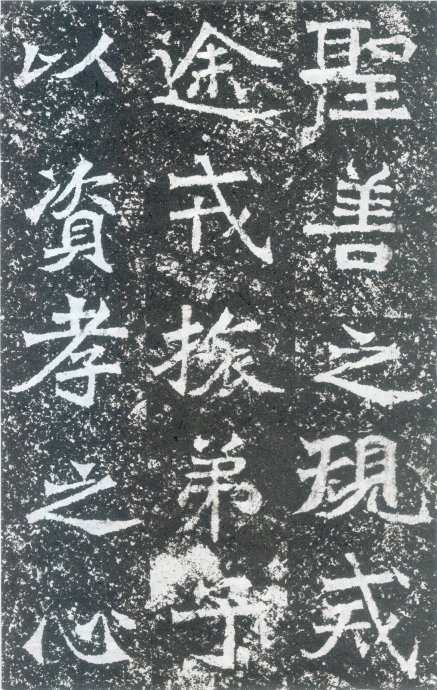 聖善之現戒
途戒振弟子
以資孝之心